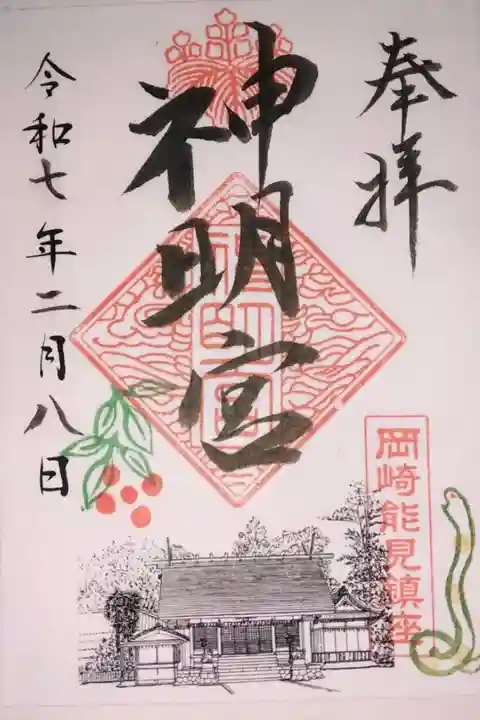 奉拝
神明宮
岡崎能見鎮座
令和七年二月八日
神明宮